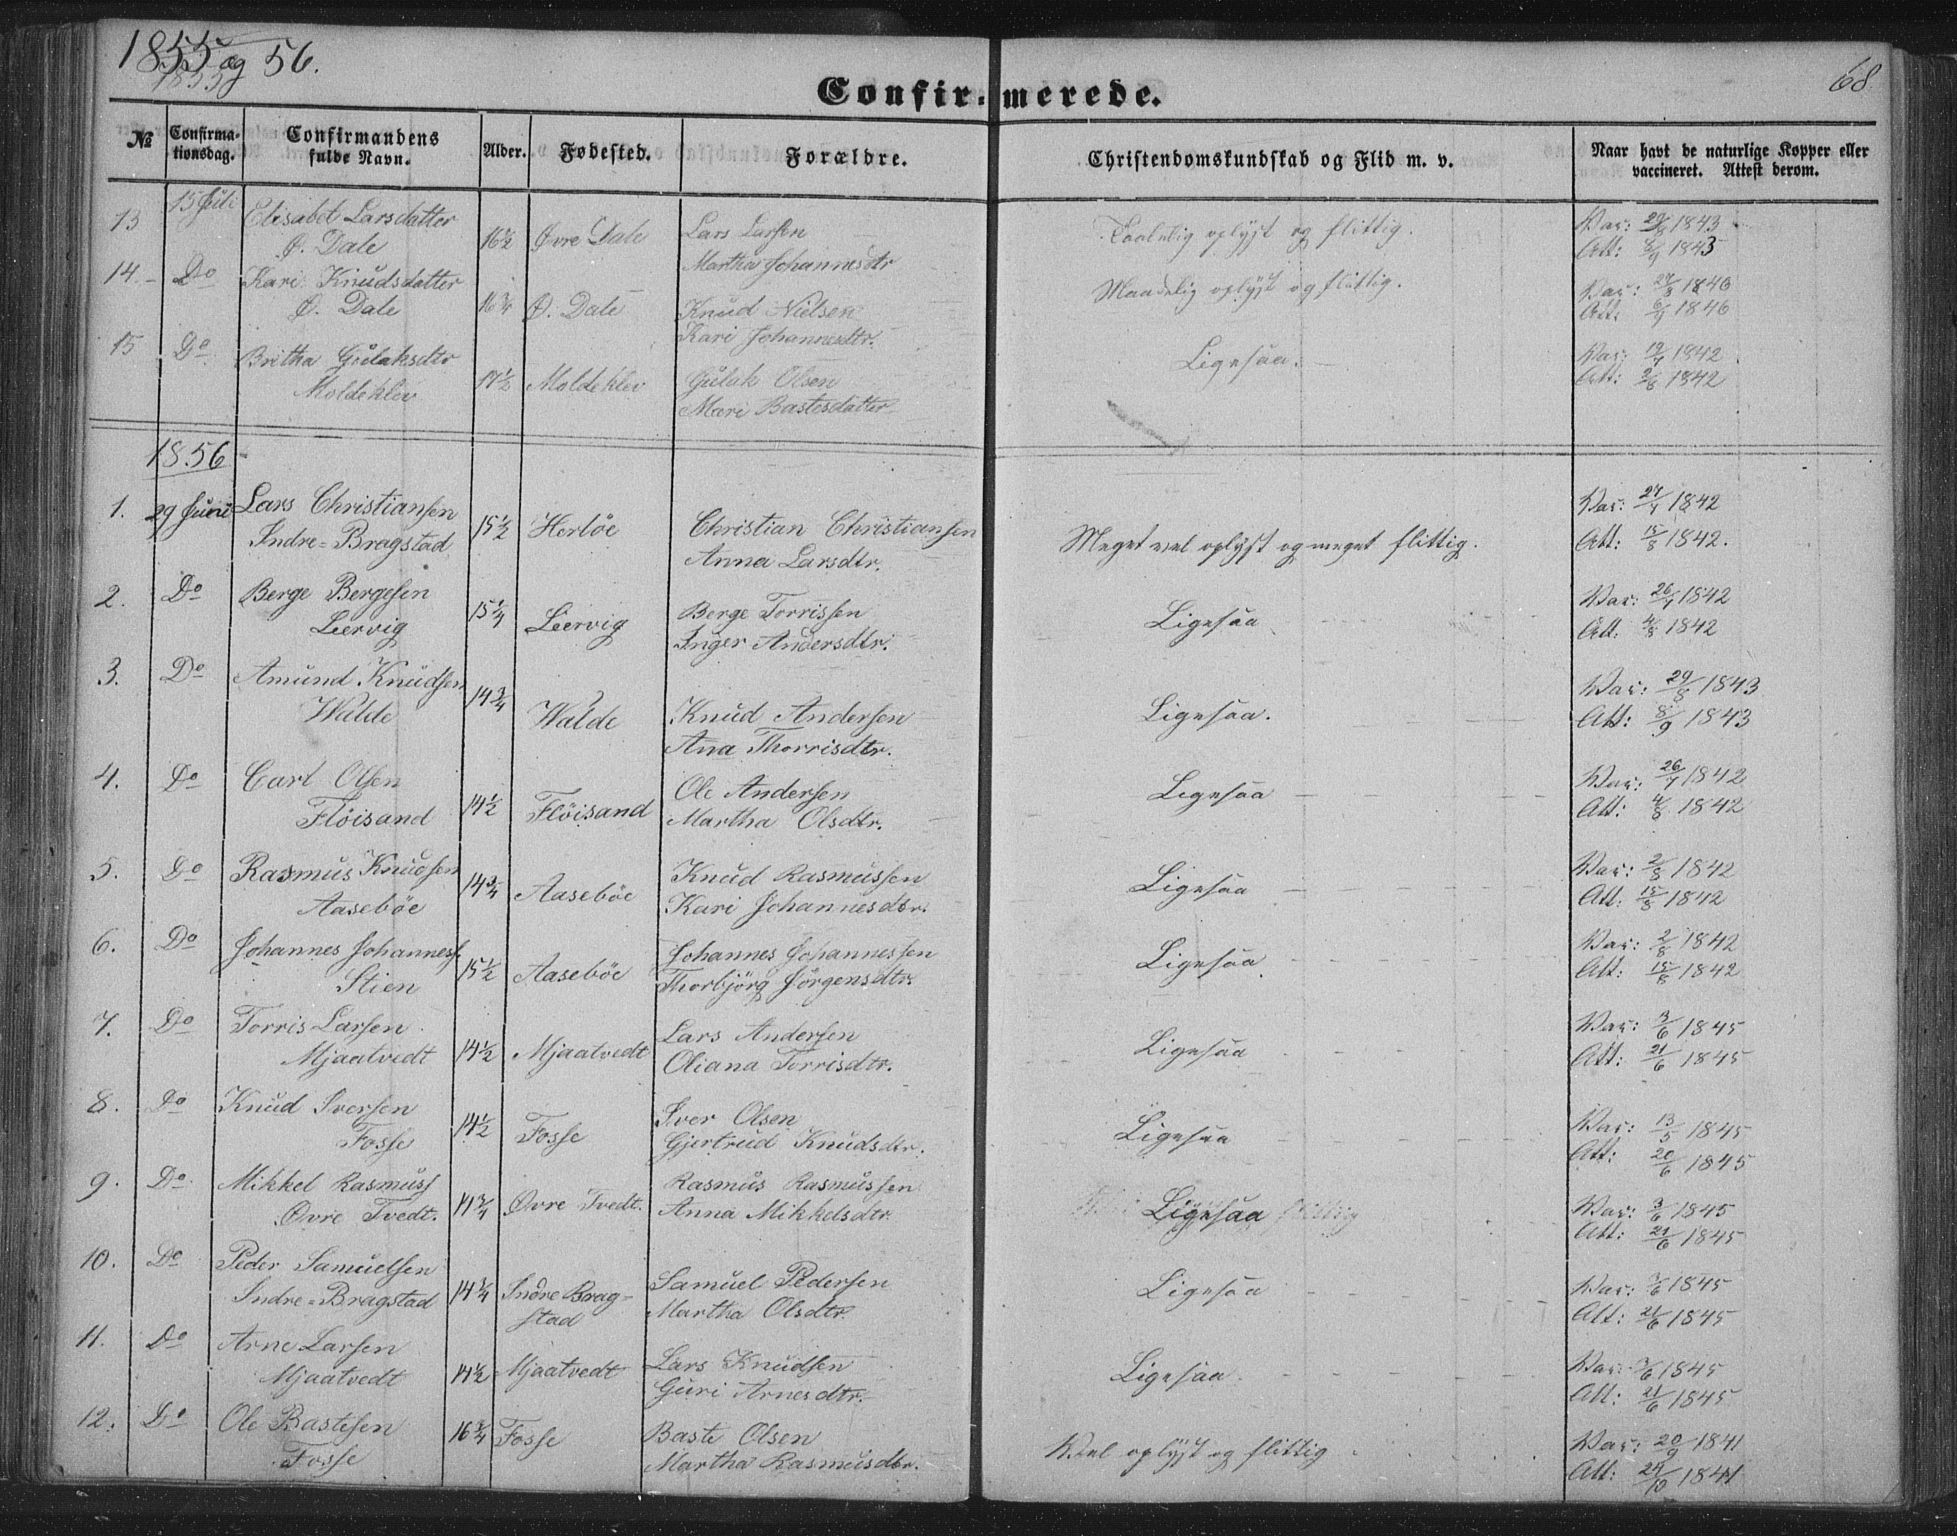 1855 og 56.
68
Confirmerede.
№ Confirmationsdag. Confirmandens fulde Navn. Alder. Fødested. Forældre. Christendomskundskab og Flid m. v. Naar havt de naturlige Kopper eller vaccineret. Attest derom.
13 15 Juli Elisabet Larsdatter Lars Larsen Vac: 1843
Ø. Dale 16½ Øvre Dale Martha Johannesdtr Taalelig oplyst og flittig. Att: 1843
14 Do Kari Knudsdatter Maadelig oplyst og flittig. Vac: 1846
Ø. Dale 16¾ Ø. Dale Knud Nielsen Att: 1846
Kari Johannesdtr.
15 Do Britha Gulaksdtr Ligesaa. Vac: 19/7 1842
Moldeklev 17½ Moldeklev Gulak Olsen Att: 1842
Mari Bastesdatter
1856
1. 29 Juni Lars Christiansen Vac: 27/7 1842
Indre=Bragstad 15½ Herløe Christian Christiansen Meget vel oplyst og meget flittig. Att: 15/8 1842.
Anna Larsdtr.
2. Do Berge Bergesen 15¼ Berge Torrissen Vac: 26/7 1842
Leervig Leervig Inger Andersdtr. Ligesaa Att: 4/8 1842
3. Do Amund Knudsen 14¾ Vac: 29/8 1843
Walde Walde Knud Andersen Ligesaa. Att: 8/9 1843
Ana Thorrisdtr.
4. Do Carl Olsen Ole Andersen Ligesaa Vac: 26/7 1842
Fløisand 14½ Fløisand Martha Olsdtr. Att: 4/8 1842
5. Do Rasmus Knudsen 14¾ Knud Rasmussen Ligesaa Vac: 2/8 1842
Aasebøe Aasebøe Kari Johannesdtr. Att: 15/8 1842
6. Do Johannes Johanness. Johannes Johannessen Ligesaa Vac: 2/8 1842
Stien 15½ Aasebøe Thorbjörg Jörgensdtr. Att: 15/8 1842
7. Do Torris Larsen Lars Andersen Vac: 3/6 1845
Mjaatvedt 14½ Mjaatvedt Oliana Torrisdtr. Ligesaa Att: 21/6 1845
8. Do Knud Iversen Iver Olsen Vac: 13/5 1845
Fosse 14½ Fosse Gjertrud Knudsdtr. Ligesaa Att: 20/6 1845
9. Do Mikkel Rasmuss Rasmus Rasmussen Vac: 3/6 1845
Øvre Tvedt. 14¾ Øvre Tvedt. Anna Mikkelsdtr Ligesaa Att: 21/6 1845
10. Do Peder Samuelsen Samuel Pedersen Vac: 3/6 1845
Indre=Bragstad 14¾ Indre Bragstad Martha Olsdtr. Ligesaa Att: 21/6 1845
11. Do Arne Larsen Lars Knudsen Vac: 3/6 1845
Mjaatvedt 14½ Mjaatvedt Guri Arnesdtr. Ligesaa. Att: 21/6 1845
12. Do Ole Bastesen 16¾ Fosse Baste Olsen Vac: 20/9 1841
Fosse Martha Rasmusdtr. Vel oplyst og flittig Att: 24/10 1841